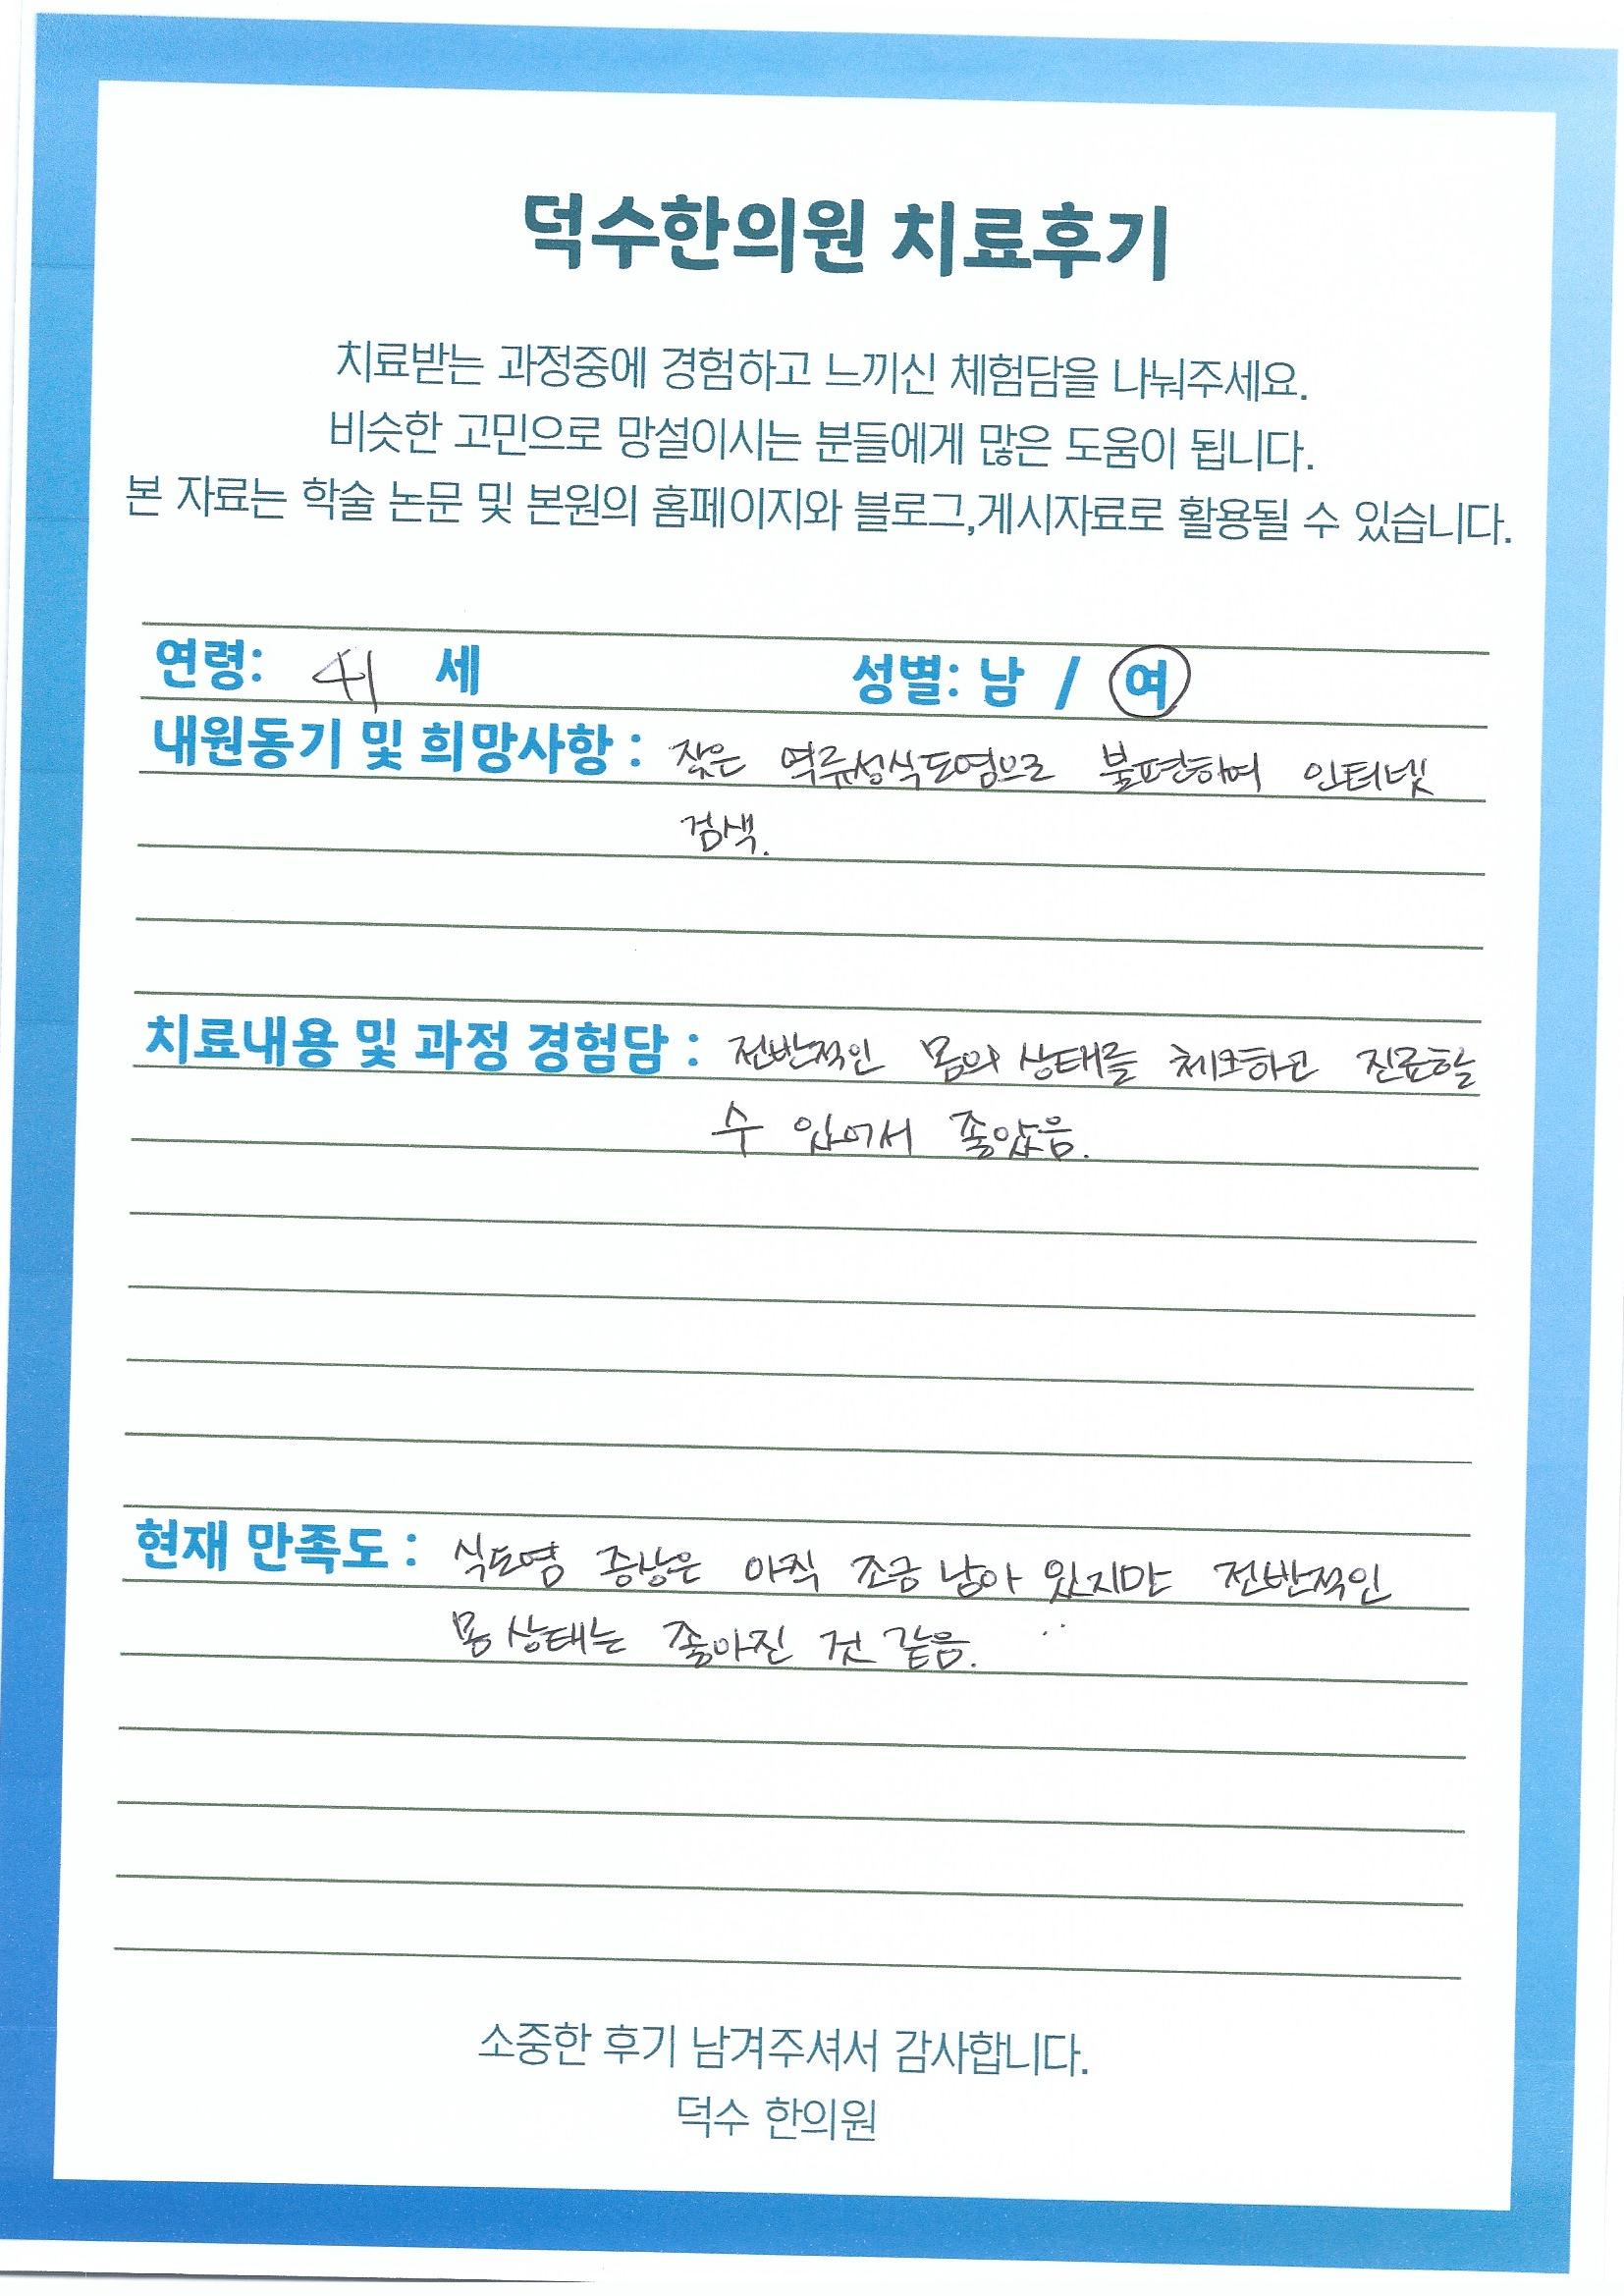 덕수한의원 치료후기
치료받는 과정중에 경험하고 느끼신 체험담을 나눠주세요.
비슷한 고민으로 망설이시는 분들에게 많은 도움이 됩니다.
본 자료는 학술 논문 및 본원의 홈페이지와 블로그,게시자료로 활용될 수 있습니다.
연령: 41 세 성별: 남 / 여
내원동기 및 희망사항 : 잦은 역류성식도염으로 불편하여 인터넷
검색.
치료내용 및 과정 경험담 : 전반적인 몸의 상태를 체크하고 진료할
수 있어서 좋았음.
현재 만족도 : 식도염 증상은 아직 조금 남아 있지만 전반적인
몸 상태는 좋아진 것 같음.
소중한 후기 남겨주셔서 감사합니다.
덕수 한의원